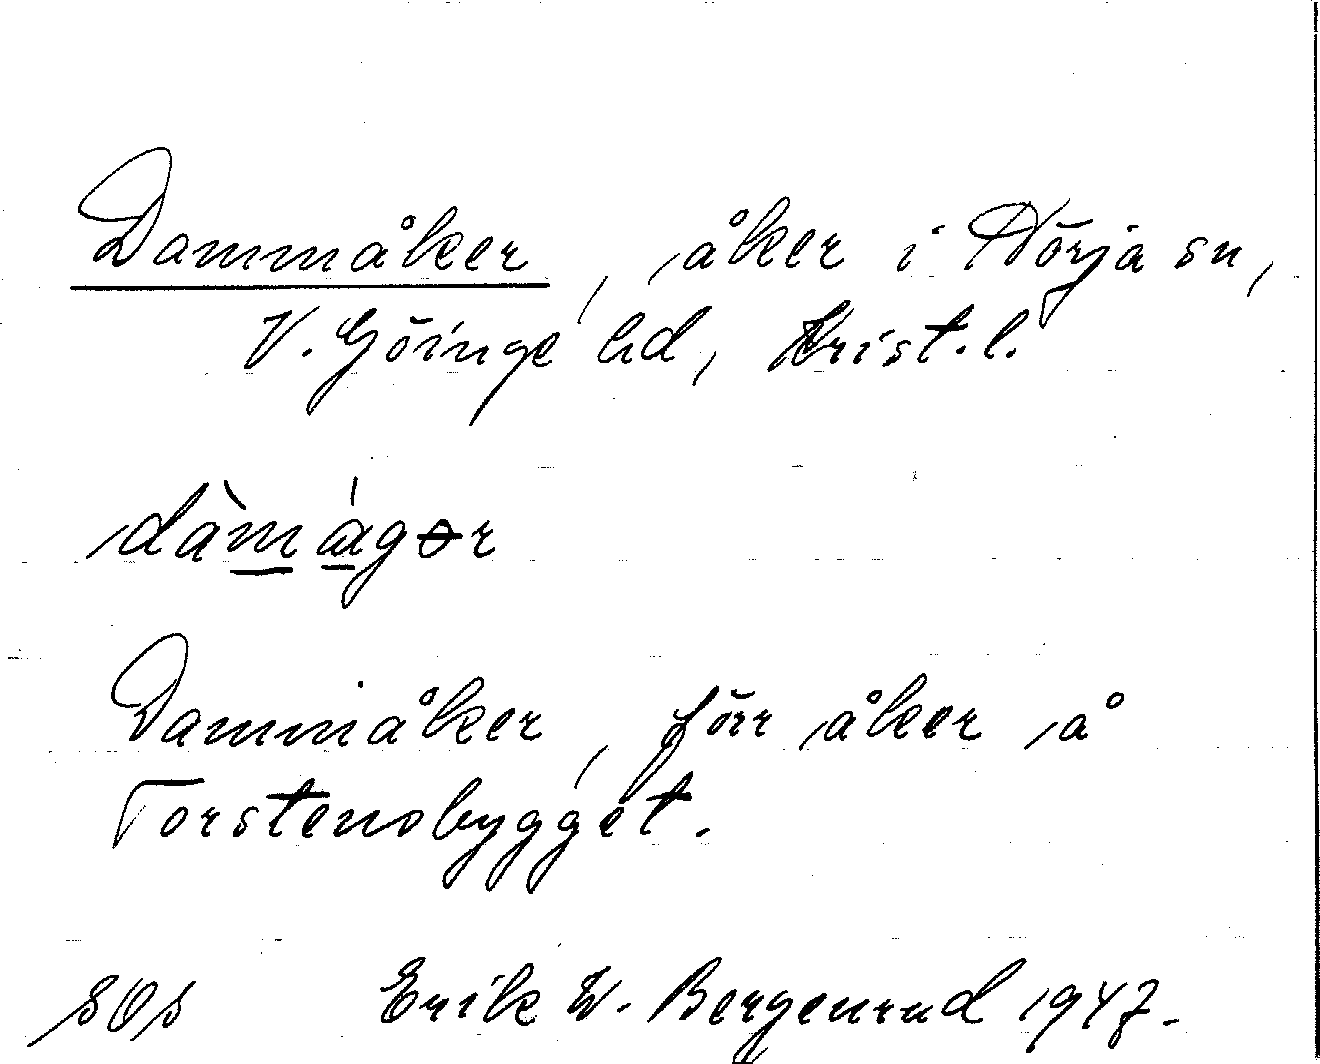 Dammåker, åker i Nörja sn,
V. Göinge hd, Krist. l.
dàmágər
Dammåker, förr åker å
Torstensbygget.
SOS Erik W. Bergenrud 1947.